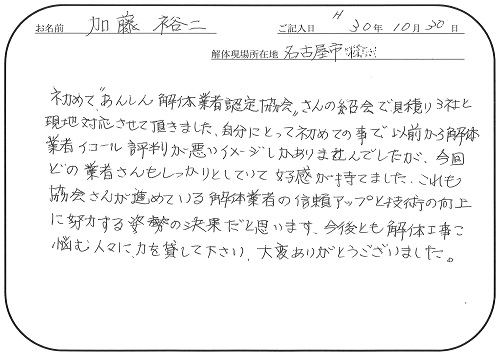 お名前 加藤 裕二 ご記入日 H30年10月30日
解体現場所在地 名古屋市
初めて"あんしん解体業者認定協会"さんの紹介で見積り3社と
現地対応させて頂きました、自分にとって初めての事で以前から解体
業者イコール評判が悪いイメージしかありませんでしたが、今回
どの業者さんもしっかりとしていて好感が持てました、これも
協会さんが進めている解体業者の信頼アップと技術の向上
に努力する姿勢の決果だと思います、今後とも解体工事に
悩む人々に力を貸して下さい、大変ありがとうございました。